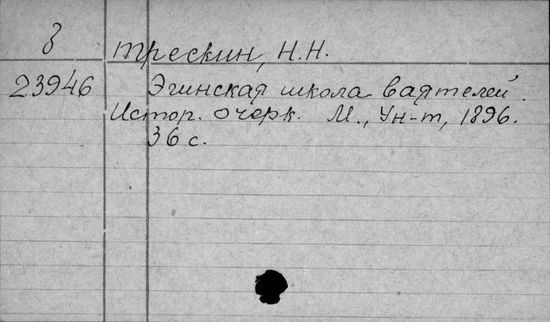 8 Трескин, Н.Н.
23946 Эгинская школа ваятелей.
Истор. очерк. М., Ун-т, 1896.
36 с.